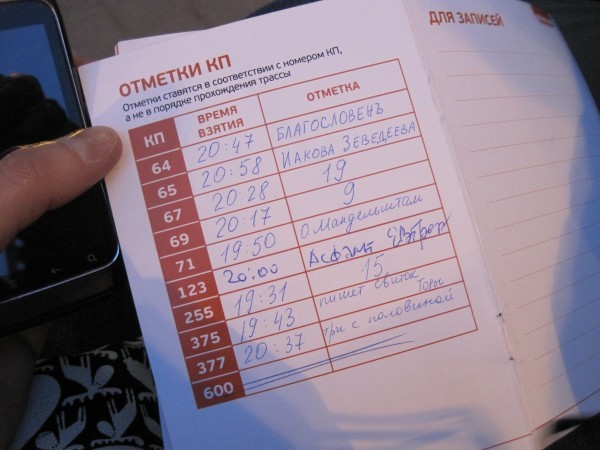 ДЛЯ ЗАПИСЕЙ
ОТМЕТКИ КП
Отметки ставятся в соответствии с номером КП,
а не в порядке прохождения трассы
КП ВРЕМЯ ВЗЯТИЯ ОТМЕТКА
64 20:47 БЛАГОСЛОВЕНЪ
65 20:58 ИАКОВА ЗЕВЕДЕЕВА
67 20:28 19
69 20:17 9
71 19:50 О.Мандельштам
123 20:00
255 19:31 15
375 19:43 пишет свиток Торы
377 20:37 три с половиной
600